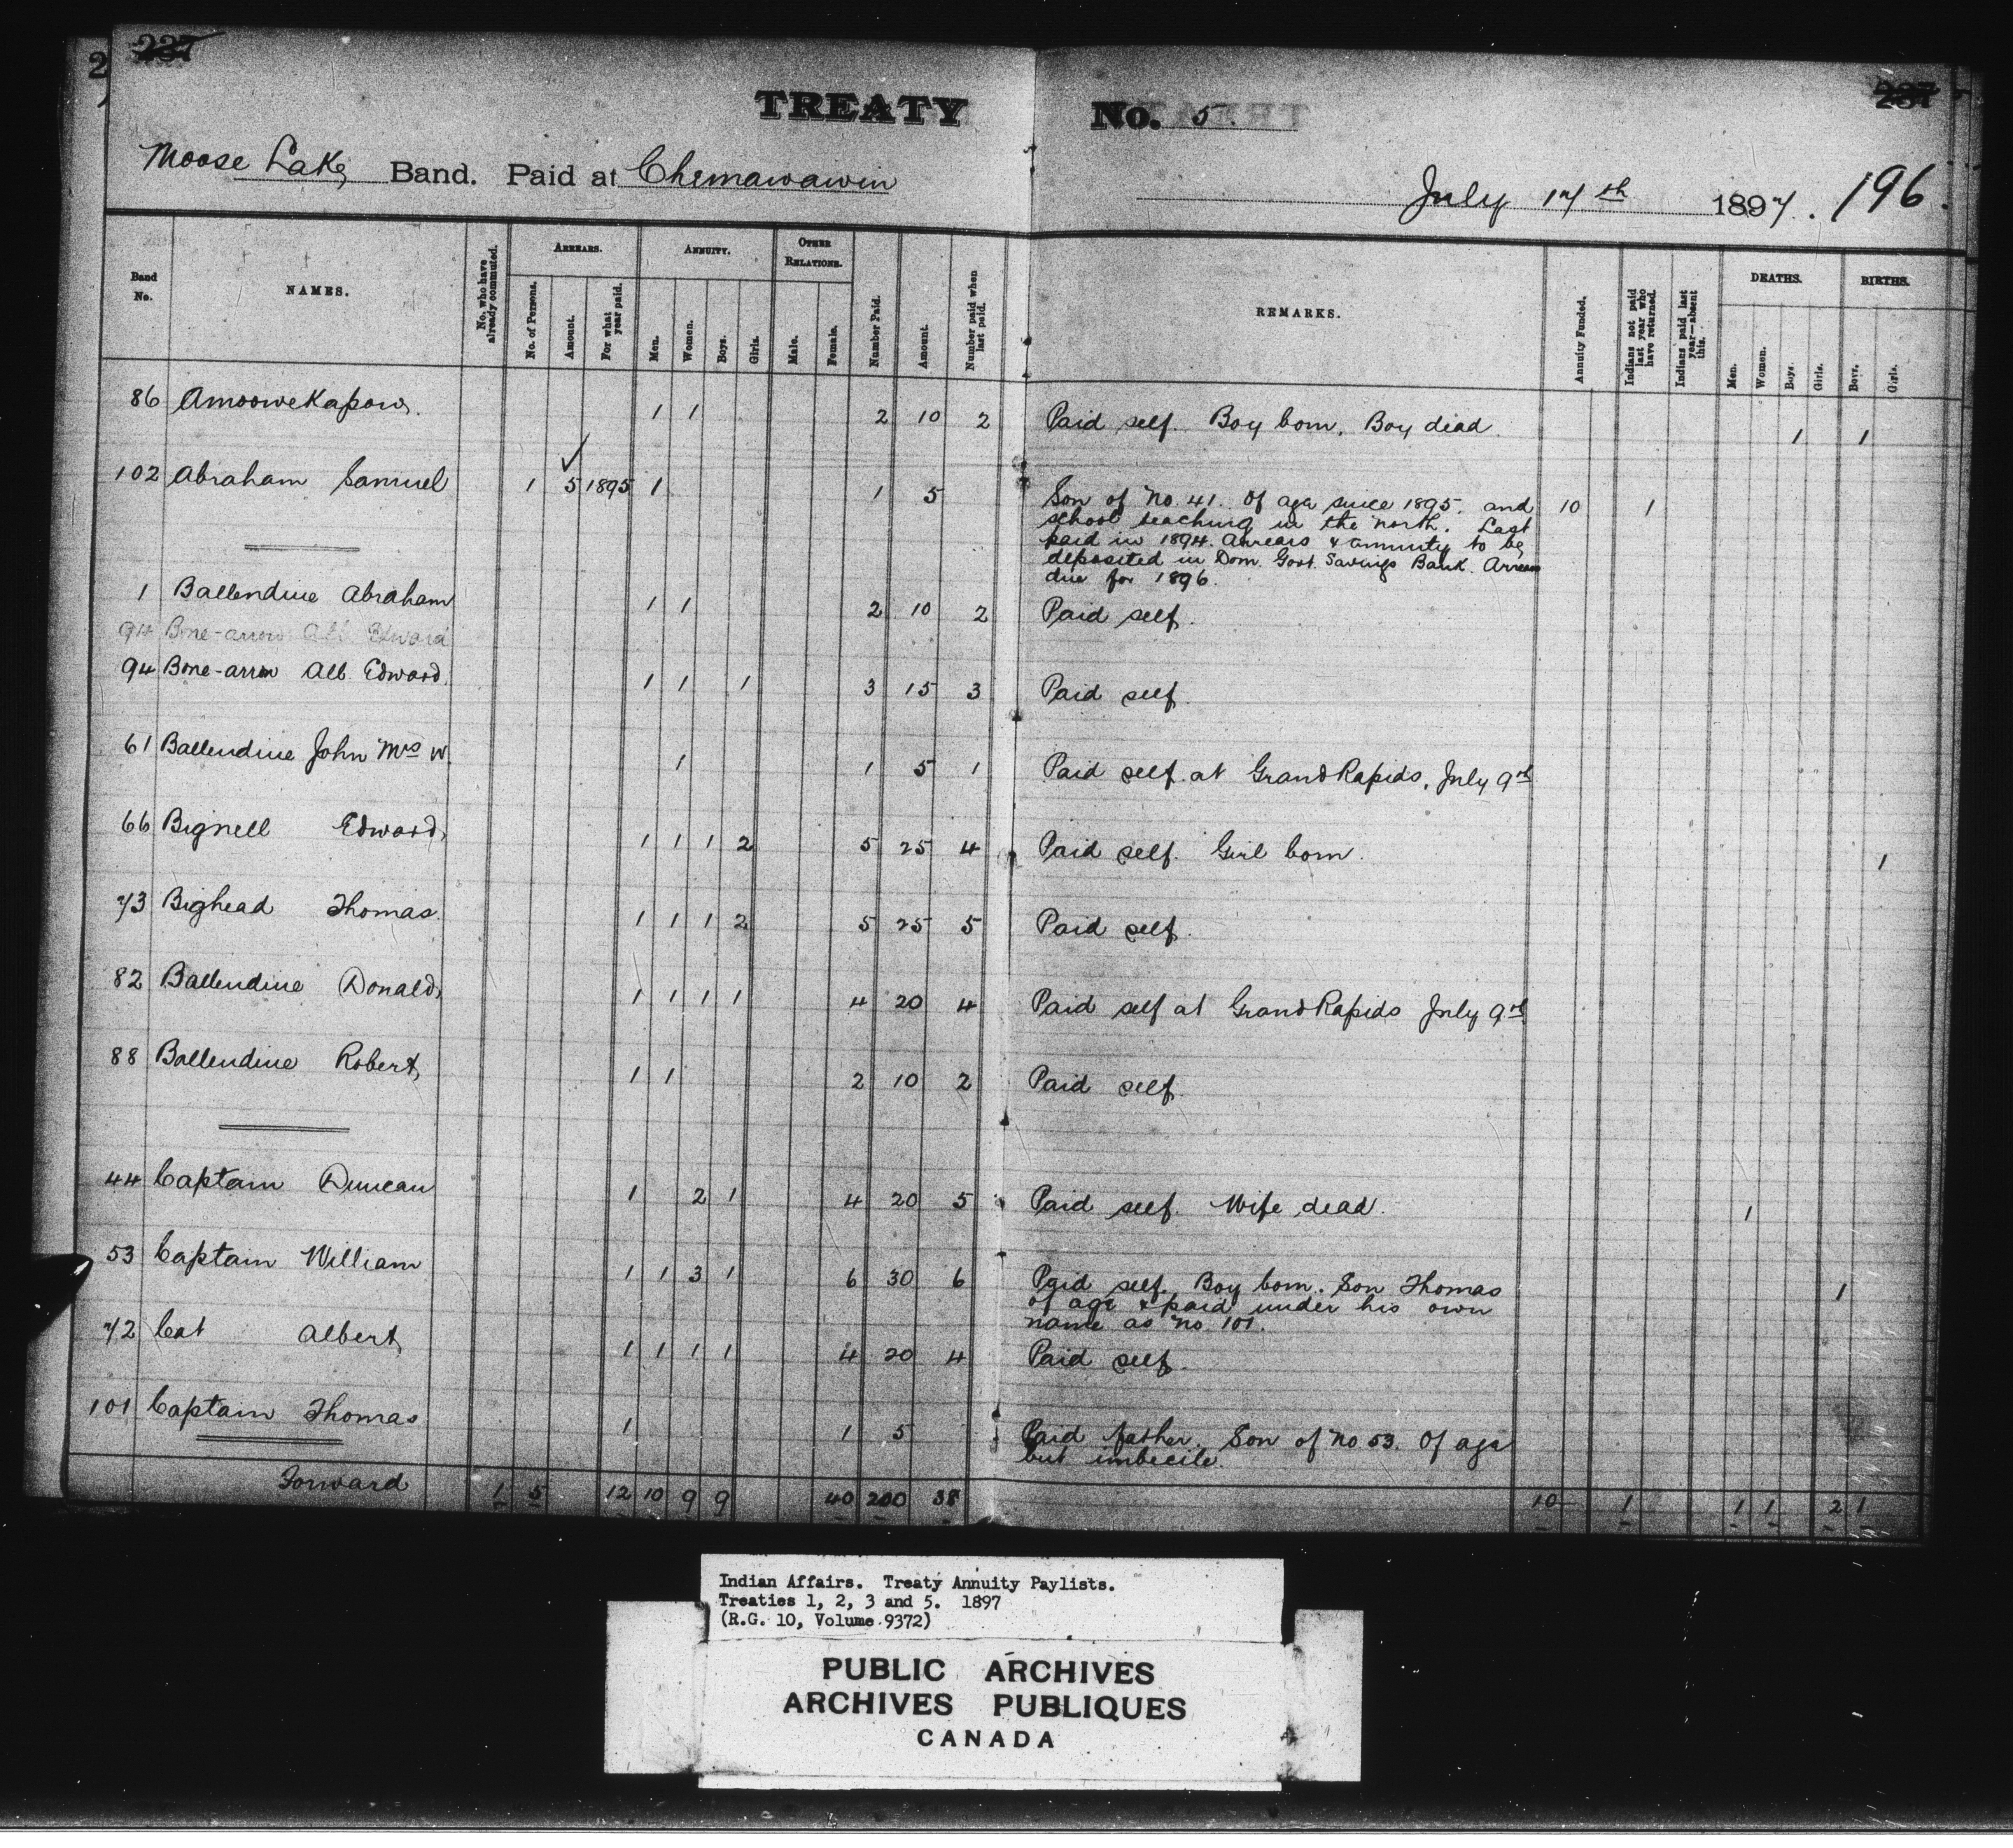 2 237 237
TREATY No. 5.
Moose Lake Band. Paid at Chemawawin July 17th 1897. 196.
Band No. NAMES. No. who have already commuted. ARREARS. No. of Persons. Amount. For what year paid. ANNUITY. Men. Women. Boys. Girls. OTHER RELATIONS. Male. Female. Number Paid. Amount. Number paid when last paid. REMARKS. Annuity Funded. Indians not paid last year who have returned. Indians paid last year—absent this. DEATHS. Men. Women. Boys. Girls. BIRTHS. Boys. Girls.
86 Amoowekapow. 1 1 2 10 2 Paid self. Boy born. Boy dead. 1 1
102 Abraham Samuel 1 5 1895 1 1 5 Son of No. 41. Of age since 1895. and 10 1
school teaching in the north. Last
paid in 1894. Arrears & annuity to be
deposited in Dom. Govt. Savings Bank. Arrears
due for 1896.
1 Ballendine Abraham 1 1 2 10 2 Paid self.
94 Bone-arrow Alb. Edward
94 Bone-arrow Alb. Edward. 1 1 1 3 15 3 Paid self.
61 Ballendine John Mrs W. 1 1 5 1 Paid self at Grand Rapids, July 9th
66 Bignell Edward, 1 1 1 2 5 25 4 Paid self. Girl born. 1
73 Bighead Thomas 1 1 1 2 5 25 5 Paid self.
82 Ballendine Donald, 1 1 1 1 4 20 4 Paid self at Grand Rapids July 9th
88 Ballendine Robert, 1 1 2 10 2 Paid self.
44 Captain Duncan 1 2 1 4 20 5 Paid self. Wife dead. 1
53 Captain William 1 1 3 1 6 30 6 Paid self. Boy born. Son Thomas 1
of age & paid under his own
name as No. 101.
72 Cat Albert, 1 1 1 1 4 20 4 Paid self.
101 Captain Thomas 1 1 5 Paid father. Son of No 53. Of age
but imbecile.
Forward 1 5 12 10 9 9 40 200 38 10 1 1 1 2 1
Indian Affairs. Treaty Annuity Paylists.
Treaties 1, 2, 3 and 5. 1897
(R.G. 10, Volume 9372)
PUBLIC ARCHIVES
ARCHIVES PUBLIQUES
CANADA